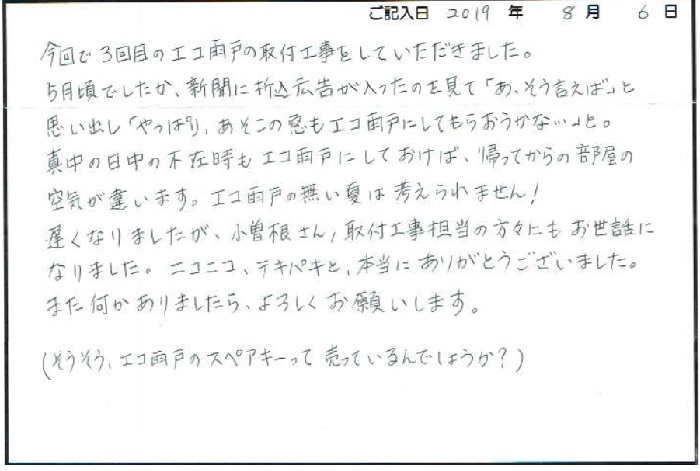 ご記入日 2019 年 8 月 6 日
今回で3回目のエコ雨戸の取付工事をしていただきました。
5月頃でしたか、新聞に折込広告が入ったのを見て「あ、そう言えば」と
思い出し「やっぱり、あそこの窓もエコ雨戸にしてもらおうかな…」と。
真中の日中の不在時もエコ雨戸にしておけば、帰ってからの部屋の
空気が違います。エコ雨戸の無い夏は考えられません！
遅くなりましたが、小曽根さん、取付工事担当の方々にもお世話に
なりました。ニコニコ、テキパキと、本当にありがとうございました。
また何かありましたら、よろしくお願いします。
(そうそう、エコ雨戸のスペアキーって売っているんでしょうか？)